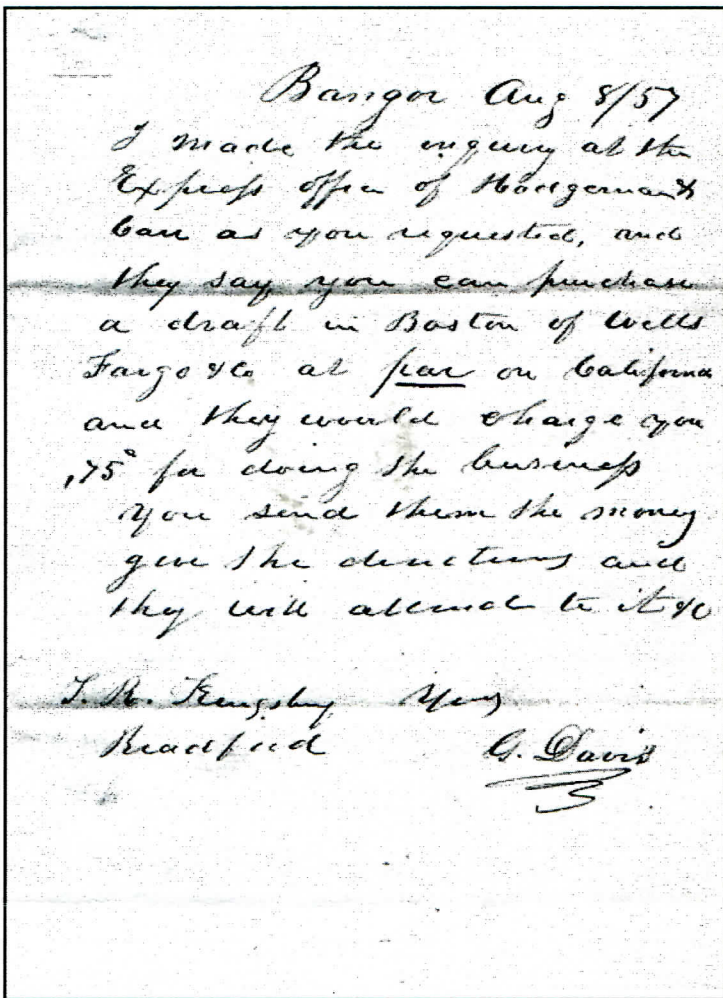 Bangor Aug 8/57
I made the inquiry at the
Express office of Hodgman &
Carr as you requested, and
they say, you can purchase
a draft in Boston of Wells
Fargo & Co at par on California
and they would charge you
,75c for doing the business
You send them the money
give the directions and
they will attend to it &c
T. R. Kingsbury Yours
Bradford G. Davis